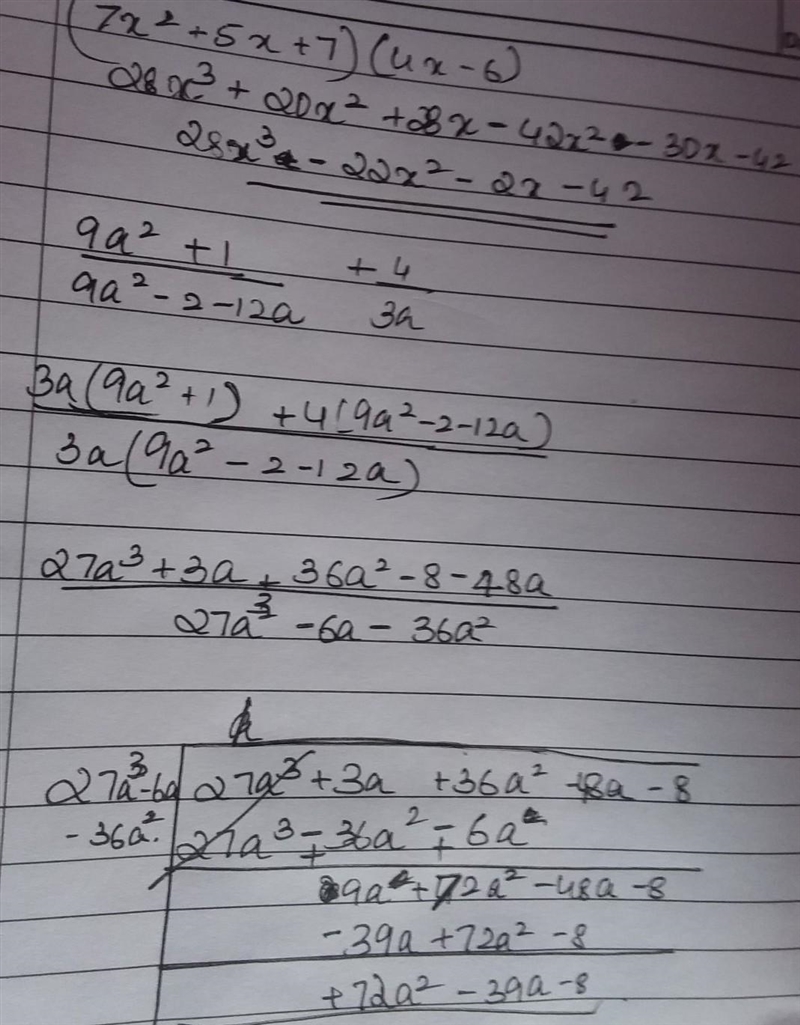 (7x² + 5x + 7) (4x - 6)
28x³ + 20x² + 28x - 42x² - 30x - 42
28x³ - 22x² - 2x - 42
9a² + 1 + 4
9a² - 2 - 12a 3a
3a(9a² + 1) + 4(9a² - 2 - 12a)
3a(9a² - 2 - 12a)
27a³ + 3a + 36a² - 8 - 48a
27a³ - 6a - 36a²
27a³ - 6a 27a³ + 3a + 36a² - 48a - 8
- 36a² 27a³ - 36a² - 6a
9a + 72a² - 48a - 8
- 39a + 72a² - 8
+ 72a² - 39a - 8